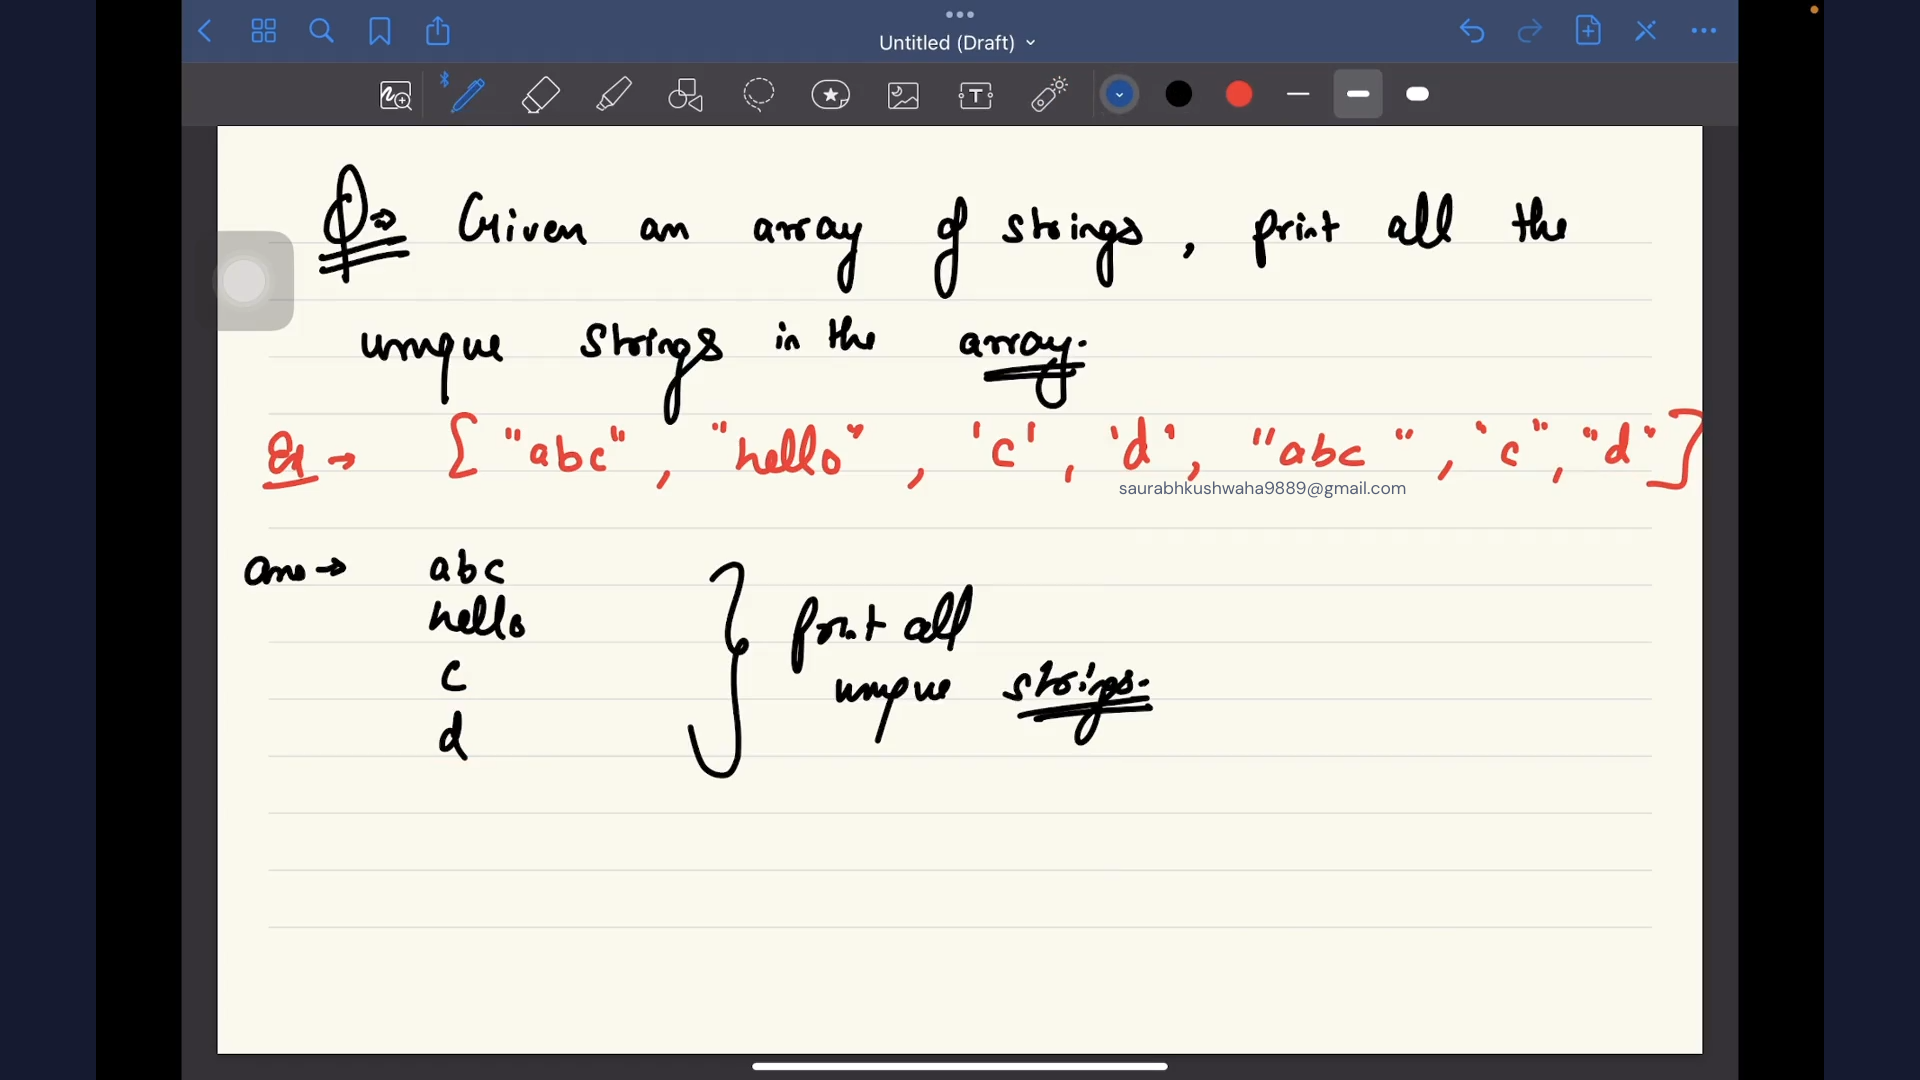 Untitled (Draft)
Q→ Given an array of strings, print all the
unique strings in the array.
Ex → ["abc", "hello", 'c', 'd', "abc", 'c", "d"]
saurabhkushwaha9889@gmail.com
ans → abc
hello
c
d
print all
unique strings.